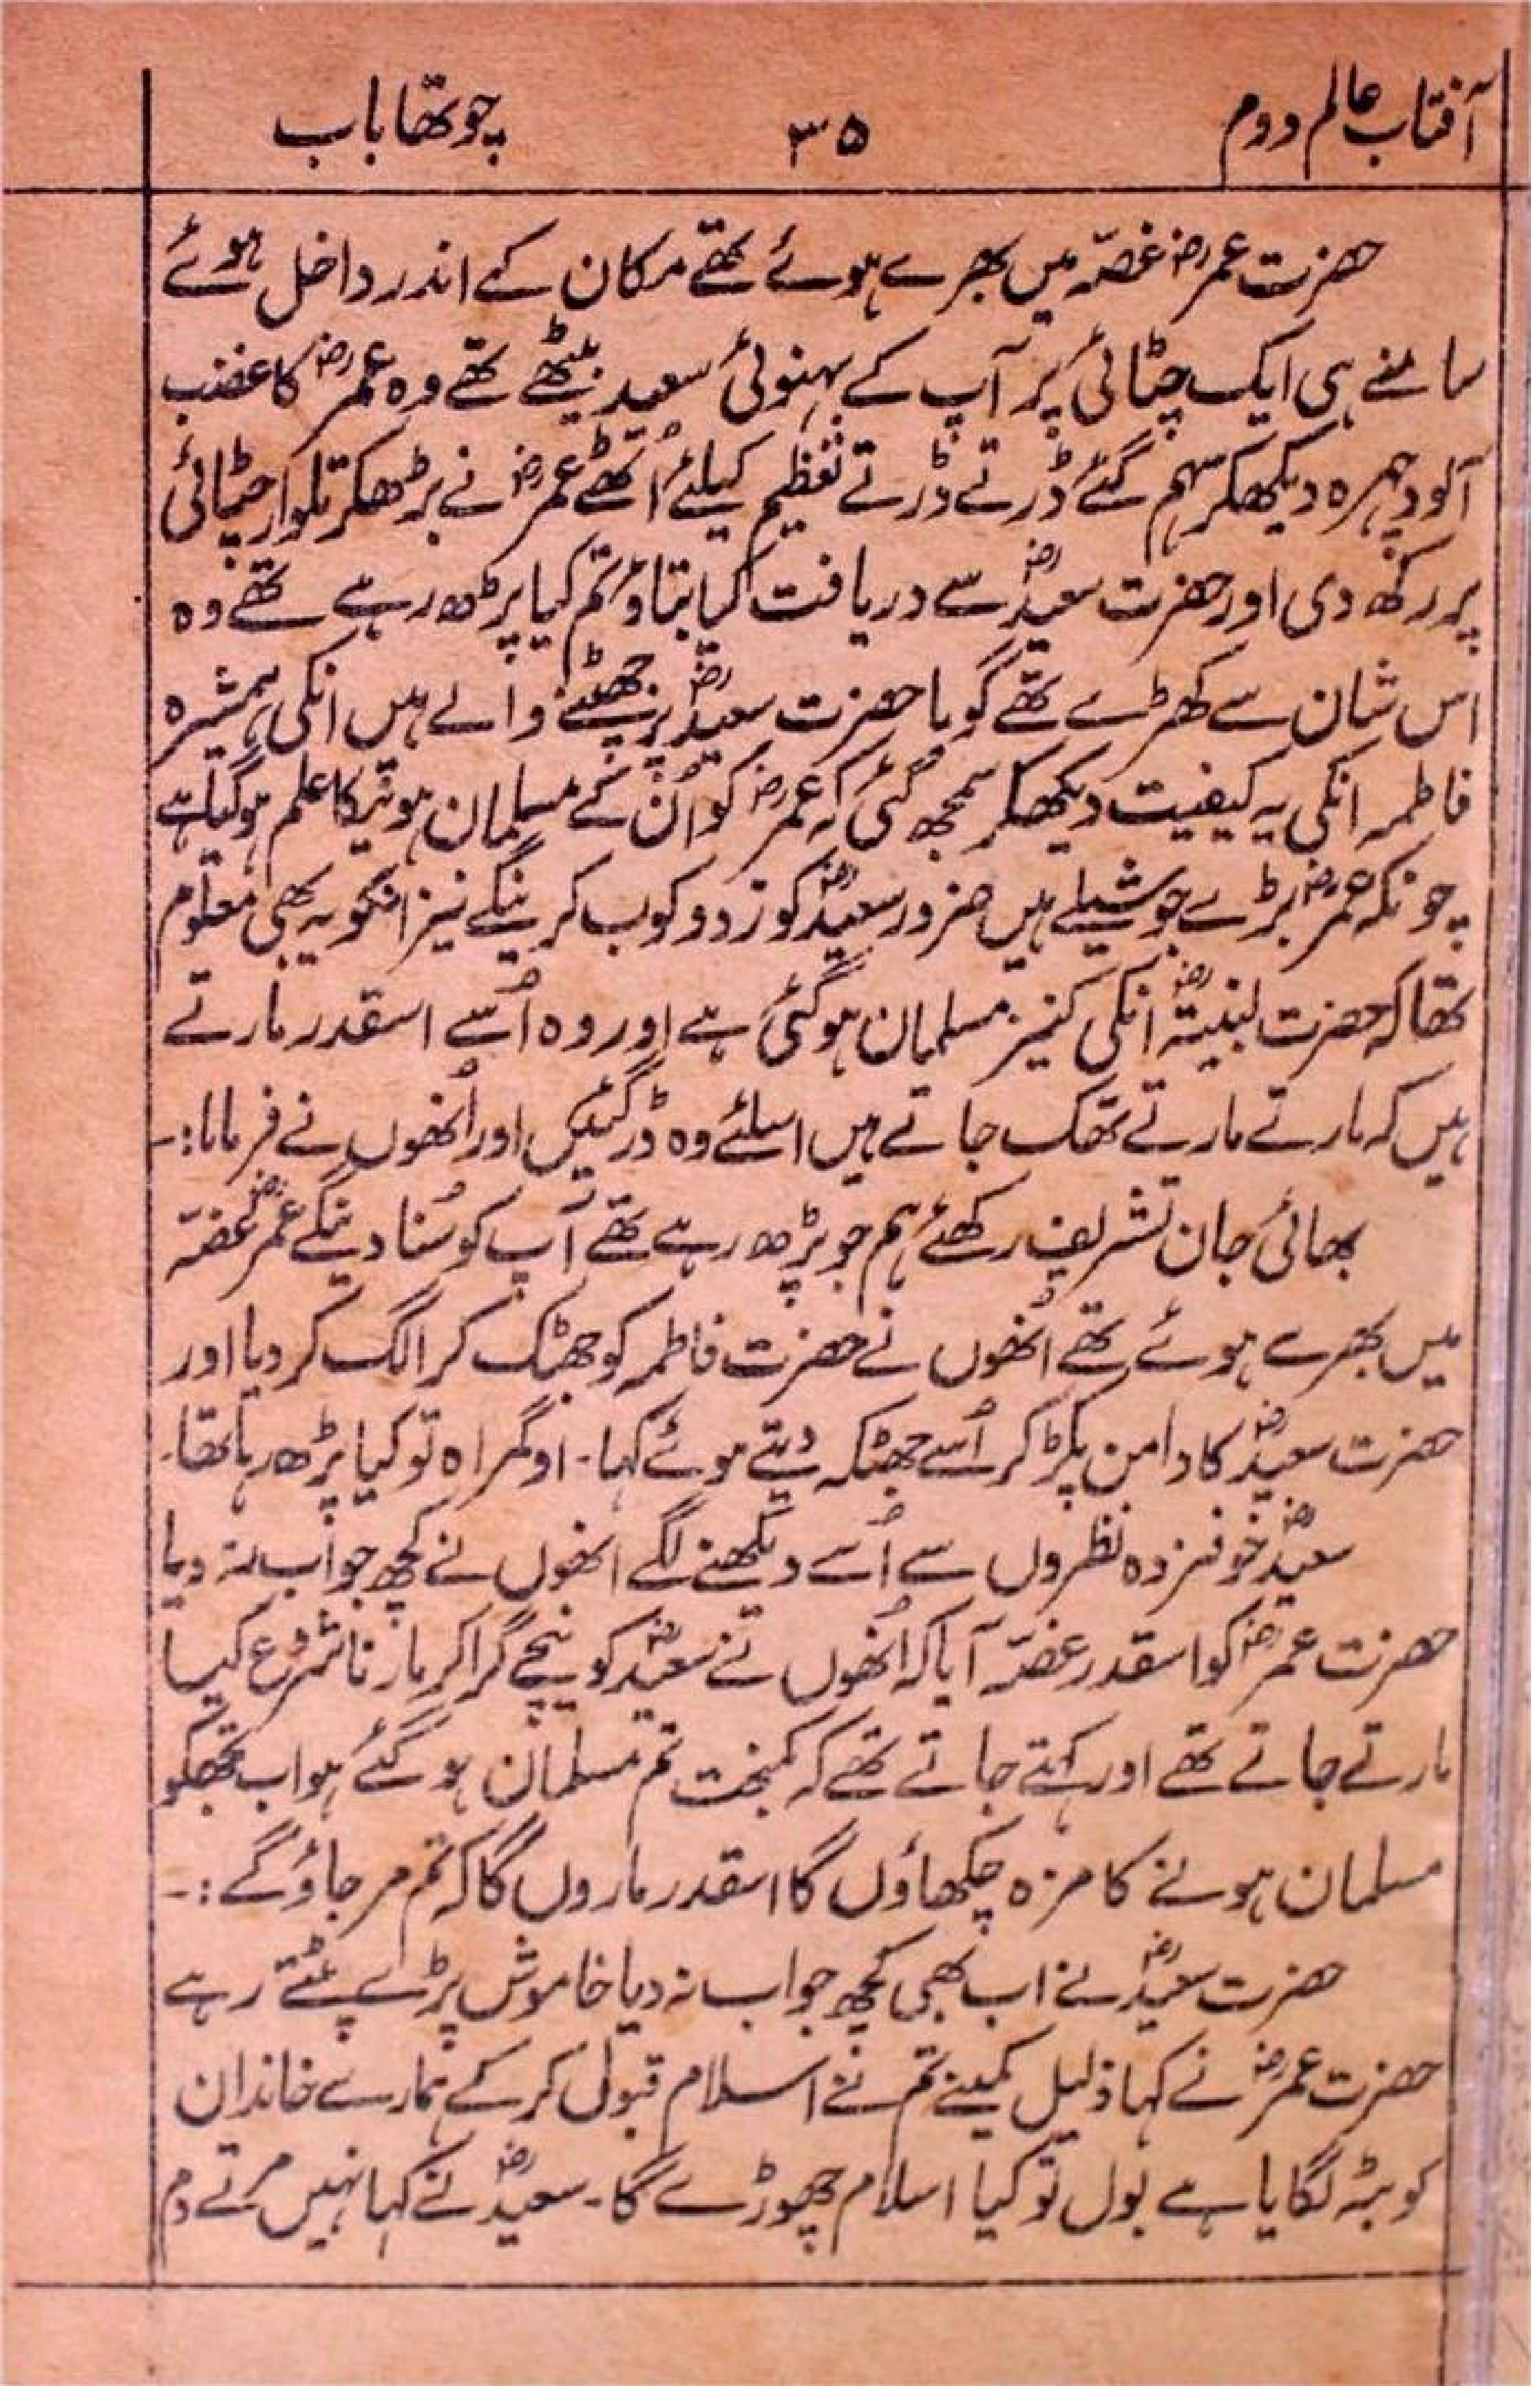 آفتاب عالم دوم ۳۵ چوتھا باب
حضرت عمرؓ غصّہ میں بھرے ہوئے تھے مکان کے اندر داخل ہوئے
سامنے ہی ایک چٹائی پر آپ کے بہنوئی سعید بیٹھے تھے وہ عمرؓ کا غضب
آلود چہرہ دیکھکر سہم گئے ڈرتے ڈرتے تعظیم کیلئے اُٹھے عمرؓ نے بڑھکر تلوار چٹائی
پر رکھ دی اور حضرت سعیدؓ سے دریافت کیا بتاؤ تم کیا پڑھ رہے تھے وہ
اس شان سے کھڑے تھے گویا حضرت سعیدؓ پر جھپٹنے والے ہیں انکی ہمشیرہ
فاطمہ انکی یہ کیفیت دیکھکر سمجھ گئی کہ عمرؓ کو اُن کے مسلمان ہونیکا علم ہو گیا ہے
چونکہ عمرؓ بڑے جوشیلے ہیں ضرور سعیدؓ کو زدوکوب کرینگے نیز انکو یہ بھی معلوم
تھا کہ حضرت لبنیتہؓ انکی کنیز مسلمان ہو گئی ہے اور وہ اُسے اسقدر مارتے
ہیں کہ مارتے مارتے تھک جاتے ہیں اسلئے وہ ڈر گئیں اور اُنھوں نے فرمایا:۔
بھائی جان تشریف رکھئے ہم جو پڑھ رہے تھے آپ کو سُنا دینگے عمرؓ غصّہ
میں بھرے ہوئے تھے اُنھوں نے حضرت فاطمہ کو جھٹک کر الگ کر دیا اور
حضرت سعیدؓ کا دامن پکڑ کر اُسے جھٹکہ دیتے ہوئے کہا۔ او گمراہ تو کیا پڑھ رہا تھا۔
سعیدؓ خوفزدہ نظروں سے اُسے دیکھنے لگے انھوں نے کچھ جواب نہ دیا
حضرت عمرؓ کو اسقدر غصّہ آیا کہ اُنھوں نے سعیدؓ کو نیچے گرا کر مارنا شرُوع کیا
مارتے جاتے تھے اور کہتے جاتے تھے کہ کمبخت تم مسلمان ہو گئے ہو اب تجھکو
مسلمان ہونے کا مزہ چکھاؤں گا اسقدر ماروں گا کہ تم مر جاؤ گے:۔
حضرت سعیدؓ نے اب بھی کچھ جواب نہ دیا خاموش پڑے پٹتے رہے
حضرت عمرؓ نے کہا ذلیل کمینے تم نے اسلام قبول کر کے ہمارے خاندان
کو بٹہ لگایا ہے بول تو کیا اسلام چھوڑے گا۔ سعیدؓ نے کہا نہیں مرتے دم